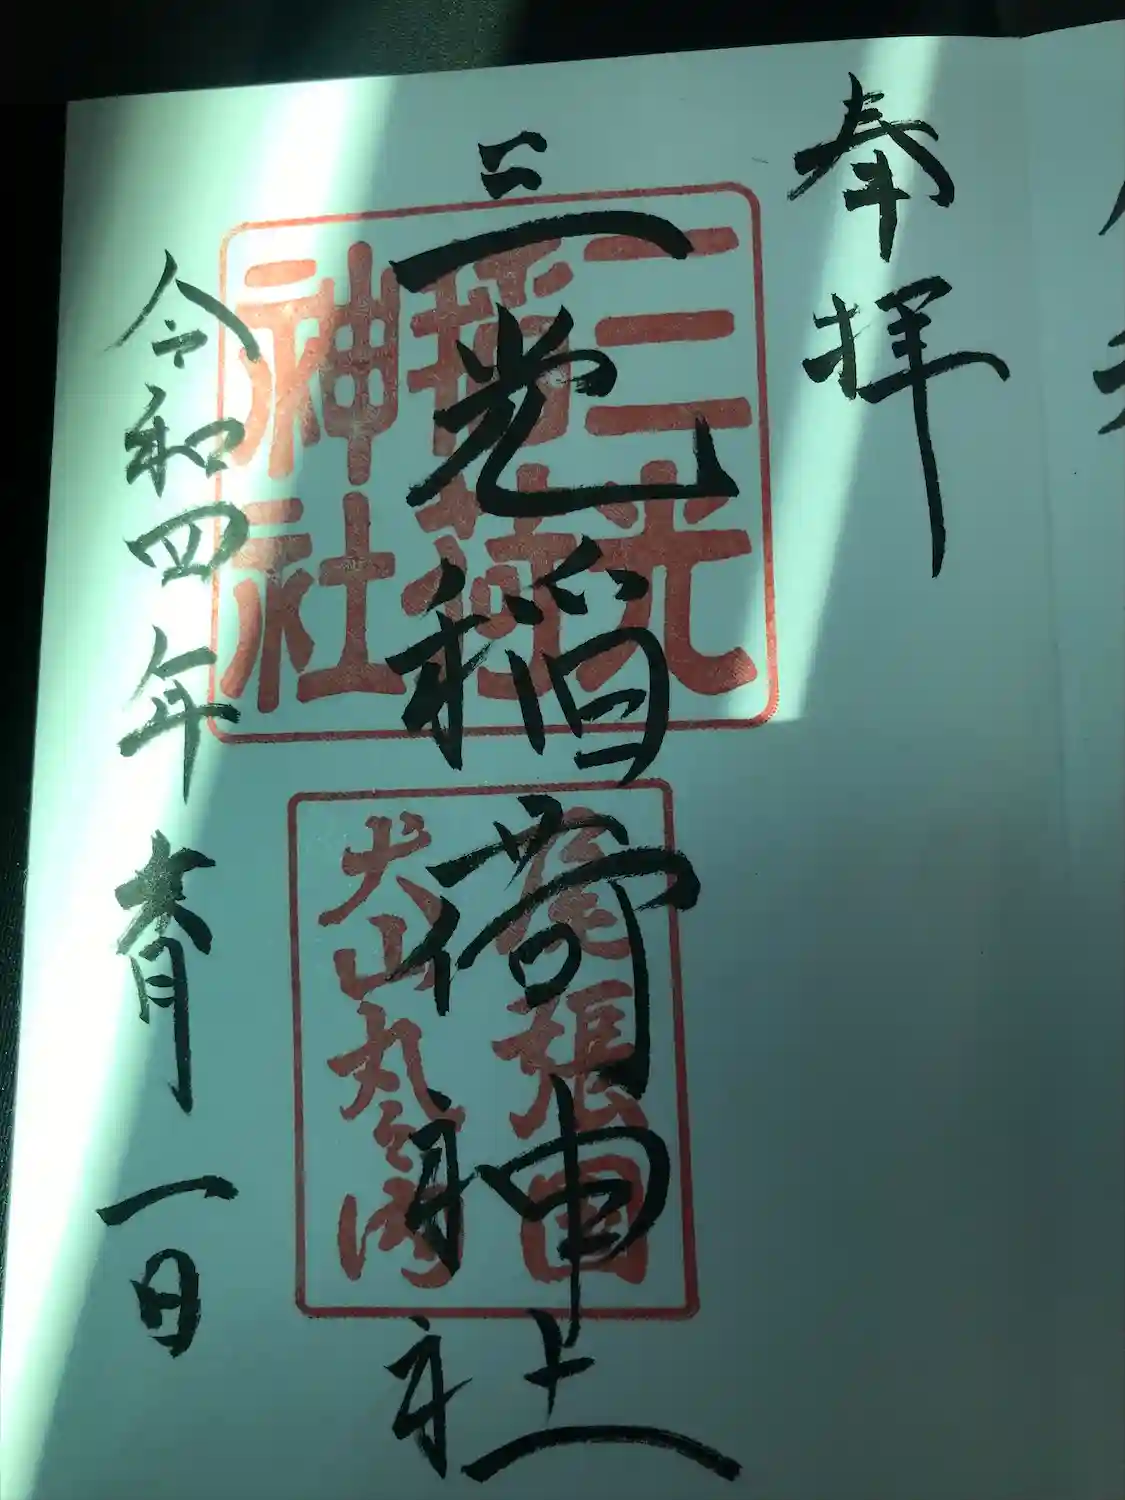 奉拝
三光稲荷神社
三光
稲荷
神社
尾張国
犬山丸之内
令和四年月一日